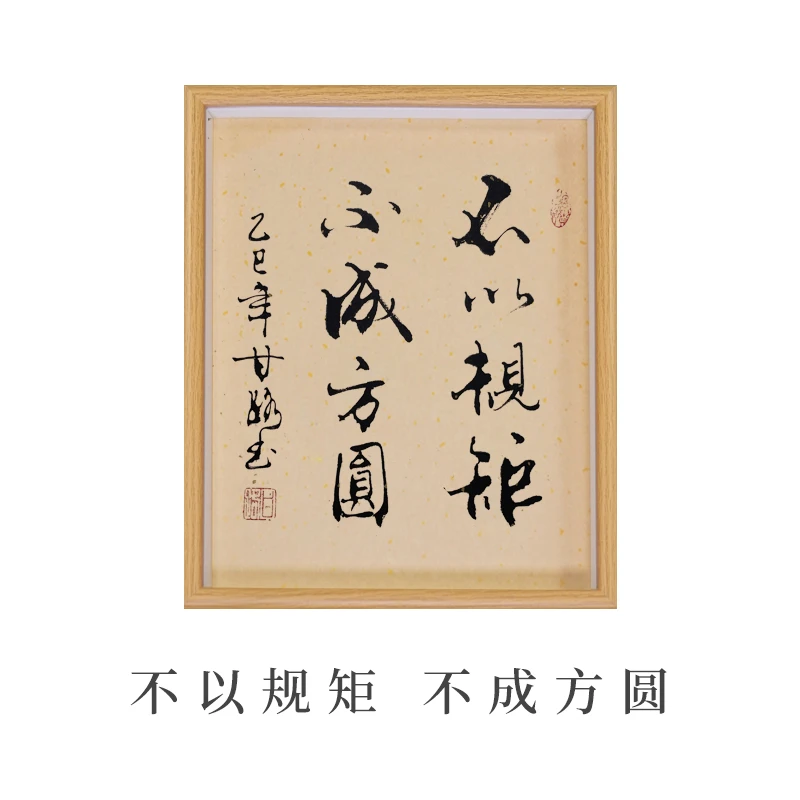 不以規矩
不成方圓
乙巳年甘
不以规矩 不成方圆